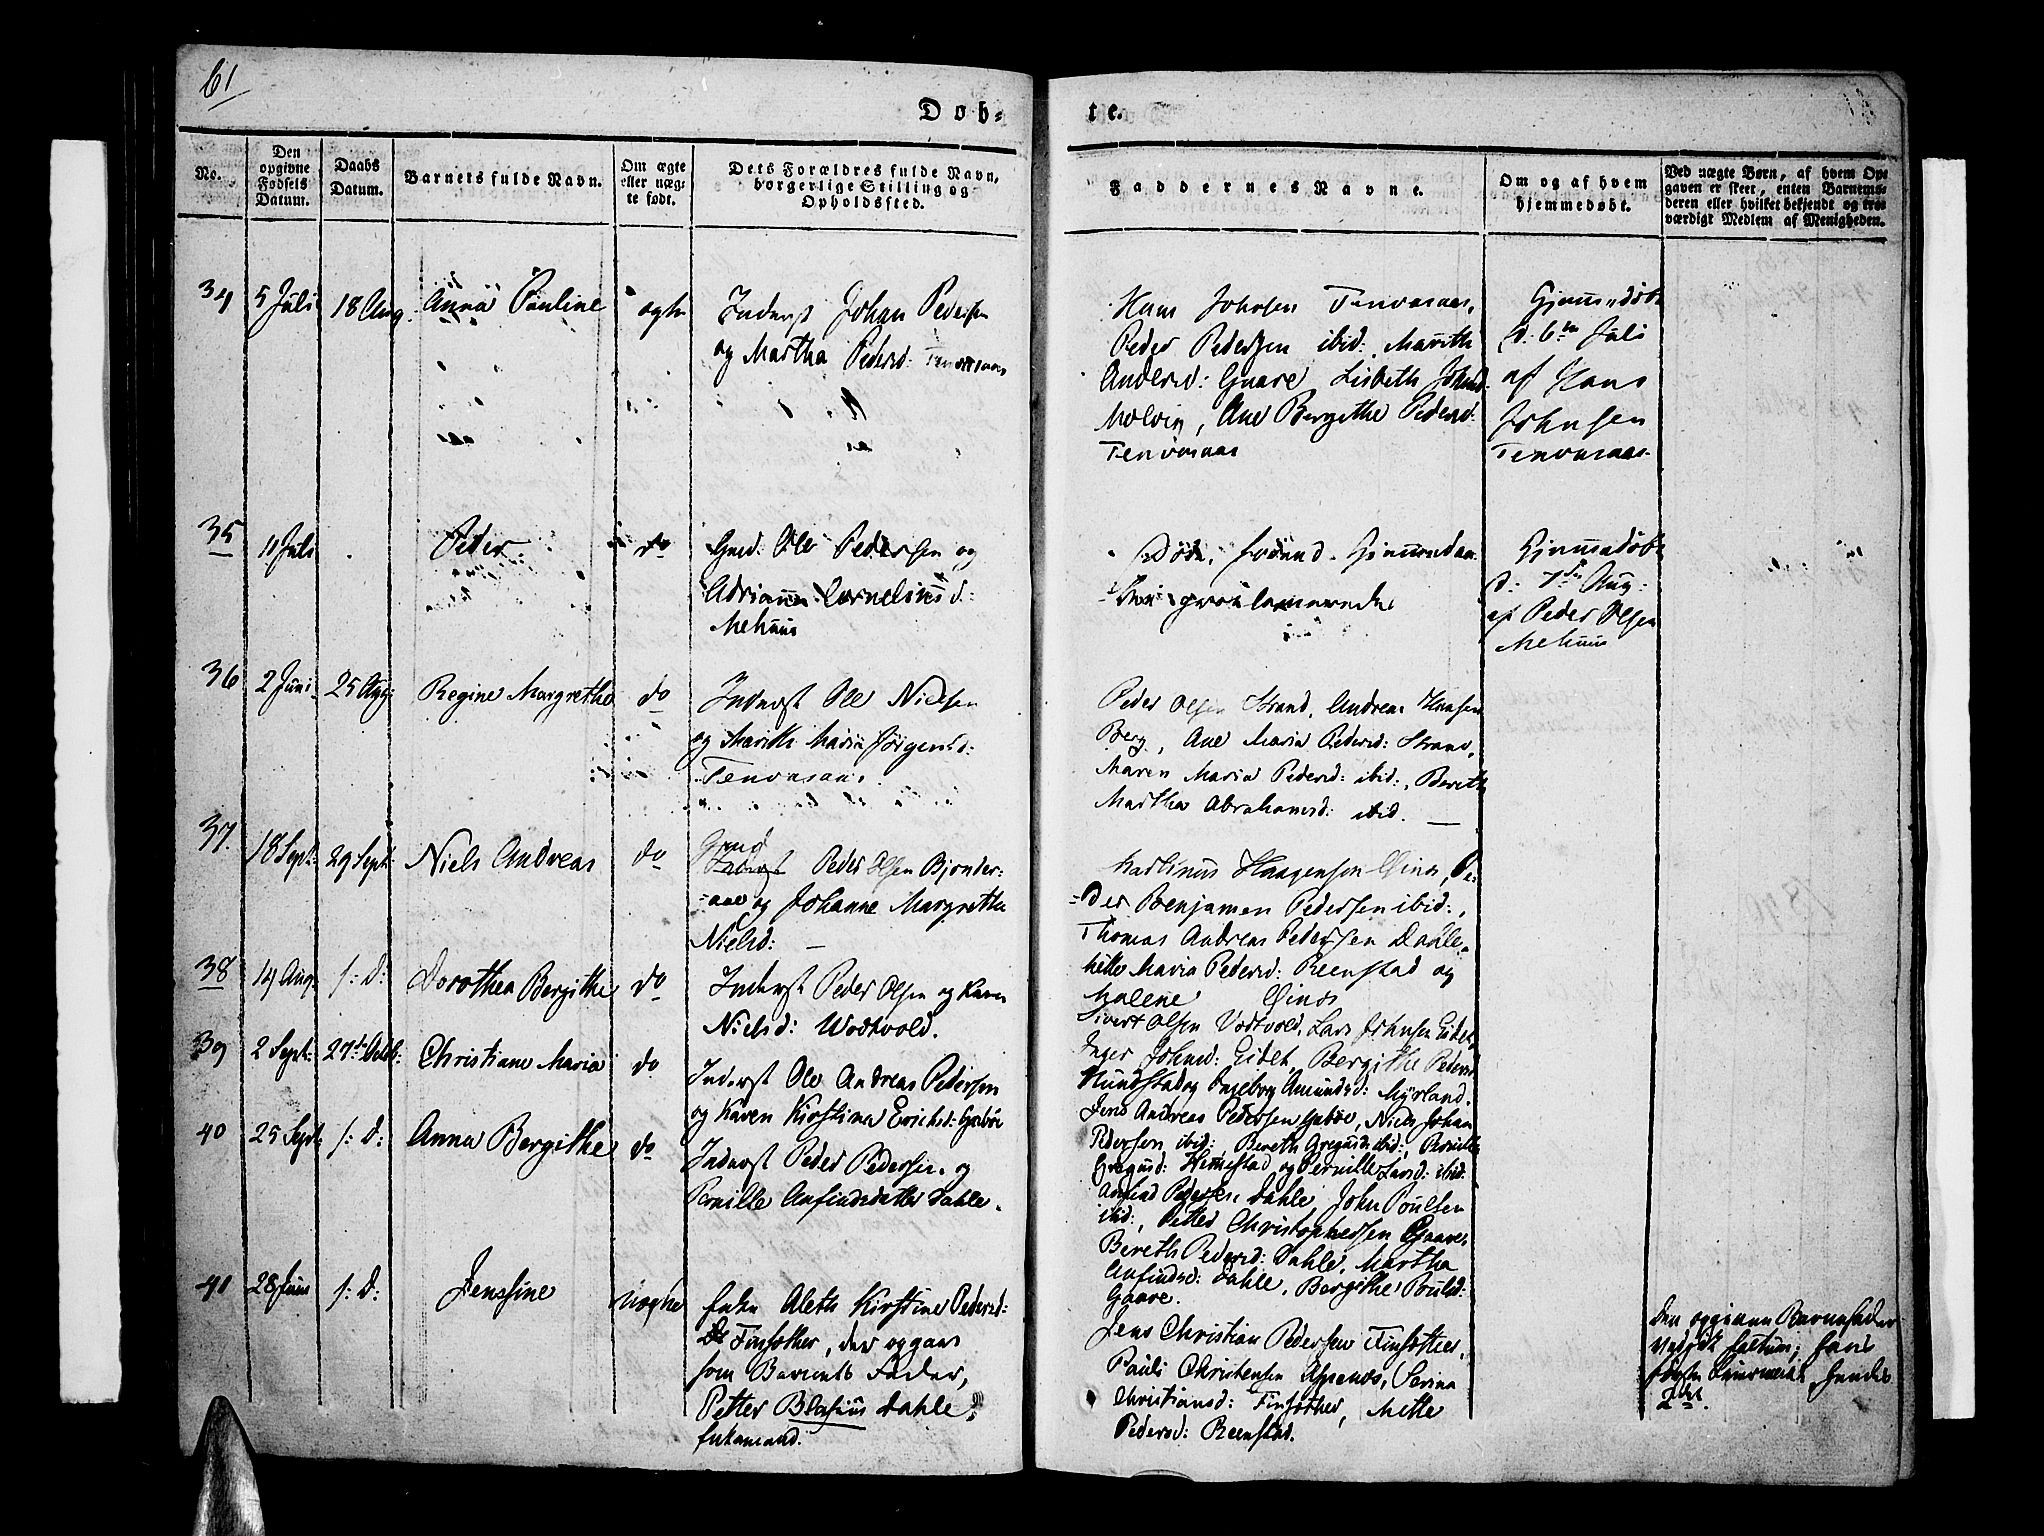 61
Døb-
te.
No.
Den
opgivne
Fødsels
Datum.
Daabs
Datum.
Barnets fulde Navn.
Om ægte
eller uæg-
te født.
Dets Forældres fulde Navn,
borgerlige Stilling og
Opholdssted.
Faddernes Navne.
Om og af hvem
hjemmedøbt.
Ved uægte Børn, af hvem Op-
gaven er skeet, enten Barnemo-
deren eller hvilket bekjendt og tro-
værdigt Medlem af Menigheden.
34
5 Juli
18 Aug.
Anna Pauline
ægte
Inderst Johan Pedersen
og Martha Pedersd:
Hans Johnsen
Peder Pedersen ibid: Marith
Andersd: Gaare Lisbeth Johnsd:
Ane Bergithe Pedersd:
Hjemmedøbt
d: 6te Juli
af Hans
Johnsen
35
11 Juli
Peder
do
Gmd: Ole Pedersen og
Adriana Corneliusd:
Melhuus
Død, forend
Hjemmedøbt
d: 7de Aug:
af Peder Olsen
Melhuus
36
2 Juni
25 Aug:
Regine Margrethe
do
Inderst Ole Nielsen
og Marith Maria Jørgensd:
Peder Olsen Strand, Andreas Hansen
Berg, Ane Maria Pedersd: Strand,
Maren Maria Pedersd: ibid:, Bereth
Martha Abrahamsd: ibid.
37.
18 Sept:
29 Sept:
Niels Andreas
do
Gmd
Inderst Peder Olsen
og Johanne Margrethe
Nielsd:
Martinus Haagensen
der Benjamen Pedersen ibid:,
Thomas Andreas Pedersen Dahle,
Mette Maria Pedersd: Reenstad og
Malene
38
14 Aug.
s: D:
Dorothea Bergithe
do
Inderst Peder Olsen og Karen
Nielsd: Wodtvold.
Sivert Olsen Vodtvold, Lars Johnsen Eidet,
Inger Johnsd: Eidet, Bergithe Pedersd:
og Ingeborg Amundsd: Myrland.
39
2 Sept:
27de Octb:
Christiane Maria
do
Inderst Ole Andreas Pedersen
og Karen Kirstina Erichsd:
Jens Andreas Pedersen Niels Johan
Pedersen ibid: Bereth Gregusd: ibid:, Pernille
Gregusd: Hemestad og Pernille Larsd: ibid:
40
25 Sept:
s: D:
Anna Bergithe
do
Inderst Peder Pedersen og
Pernille Anfindsdatter Dahle.
Anfind Pedersen Dahle, John Poulsen
ibid:, Petter Christophersen Gaare,
Bereth Pedersd: Dahle, Martha
Anfindsd: Dahle, Bergithe Poulsd:
Gaare.
41
28 Juni
s: D:
Jenssine
uægte
Enke Aleth Kirstine Pedersd:
Finsæther, der opgav
som Barnets Fader,
Petter Blasius Dahle,
Enkemand.
Jens Christian Pedersen Finsæther,
Pauli Christensen Serina
Christiansd: Finsæther, Mette
Pedersd: Reenstad.
Den opgivne Barnefader
vedgik factum;
første Leiermaal, hendes
2det.